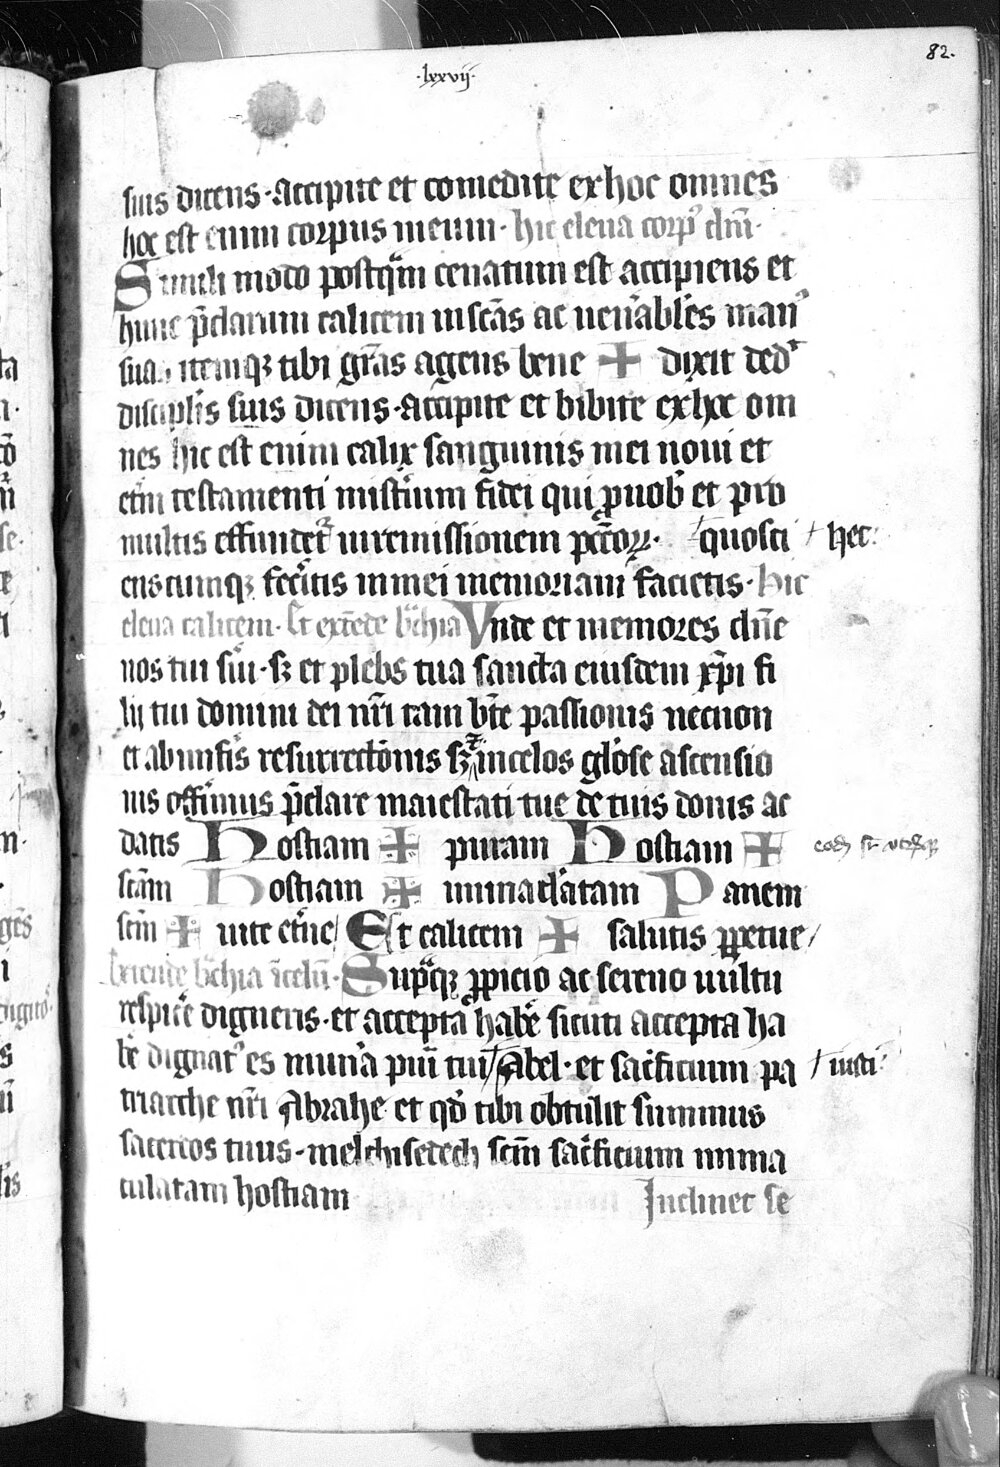 82.
·lxxvij·
suis dicens·accipite et comedite exhoc omnes
hoc est enim corpus meum· hic eleua corpꝰ dñi·
Simili modo postq̃m cenatum est accipiens et
hunc p̃clarum calicem inscãs ac uen̾abiles manꝰ
suas itemqꝫ tibi gr̃as agens bene ✚ dixit dedͭ
discipĺis suis dicens·accipite et bibite exhoc om
nes hic est enim calix sanguinis mei noui et
et̃ni testamenti mist̾ium fidei qui ꝓuobꝭ et pro
multis effundetᷣ inremissionem pctõꝝ· ⸍quosci ⸍ hec:
enscumqꝫ fec̾itis inmei memoriam facietis· Hic
eleua calicem· Et extẽde b̾chia Vnde et memores dñe
nos tui s̾ui·sꝫ et plebs tua sancta eiusdem xp̃i fi
lij tui domini dei nr̃i tam bt̃e passionis necnon
et abinfĩs resurrectiõnis sꝫ ⁊ incelos glõse ascensio
nis off̾imus p̃clare maiestati tue de tuis donis ac
datis Hostiam ✚ puram Hostiam ✚
scãm Hostiam ✚ inmaculatam Panem
scm̃ ✚ uite et̾ne/ Et calicem ✚ salutis ꝑpetue/
Extende b̾chia ĩcelũ· Supᷓqꝫ ꝓpicio ac sereno uultu
respic̾e digneris·et accepta hab̾e sicuti accepta ha
b̾e dignatꝰ es mun̾a pueri tui ⸍Abel·et sac̾ficium pa ⸍ iusti:
triarche nr̃i Abrahe et qd̾ tibi obtulit summus
sacerdos tuus·melchisedech scm̃ sac̾ficium inma
culatam hostiam Inclinet se